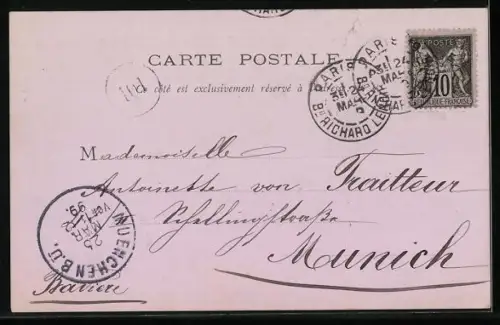 CARTE POSTALE
Ce côté est exclusivement réservé à l'adresse
POSTES
10
REPUBLIQUE FRANÇAISE
PARIS
Bd RICHARD LENOIR
24
MARS
Mademoiselle
Antoinette von Traitteur
Schellingstraße
Munich
Bavière
MUENCHEN B.U.
25
MÄR
99.